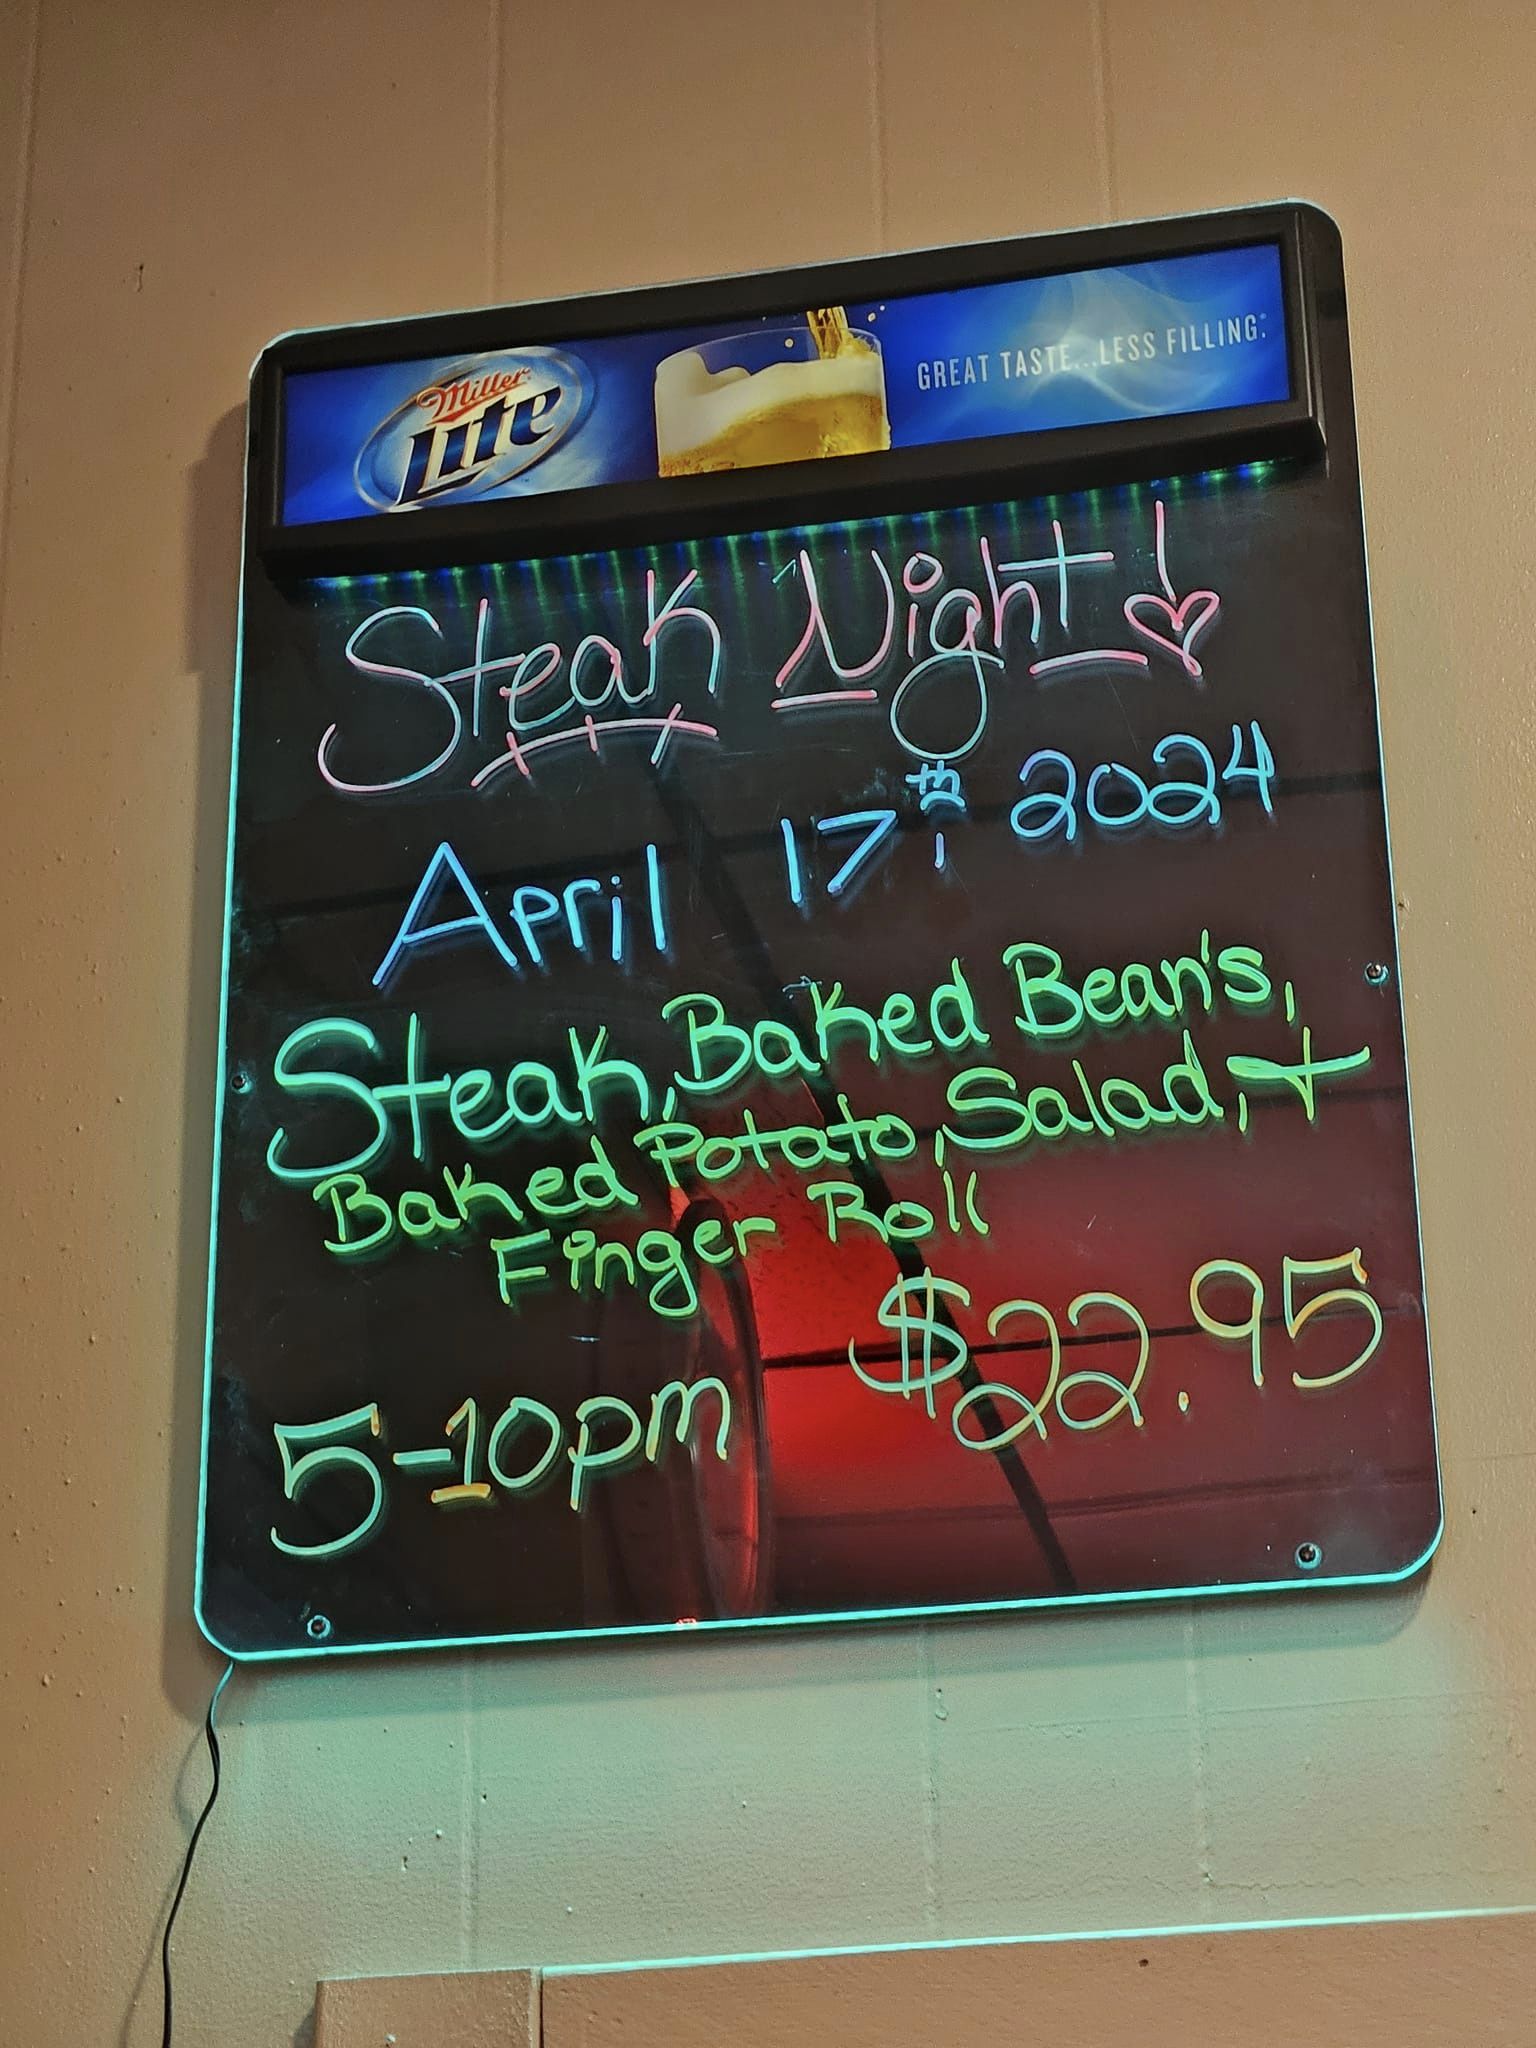 Miller
Lite
GREAT TASTE...LESS FILLING.®
Steak Night!
April 17th, 2024
Steak, Baked Bean's,
Baked Potato, Salad, +
Finger Roll
$22.95
5-10pm